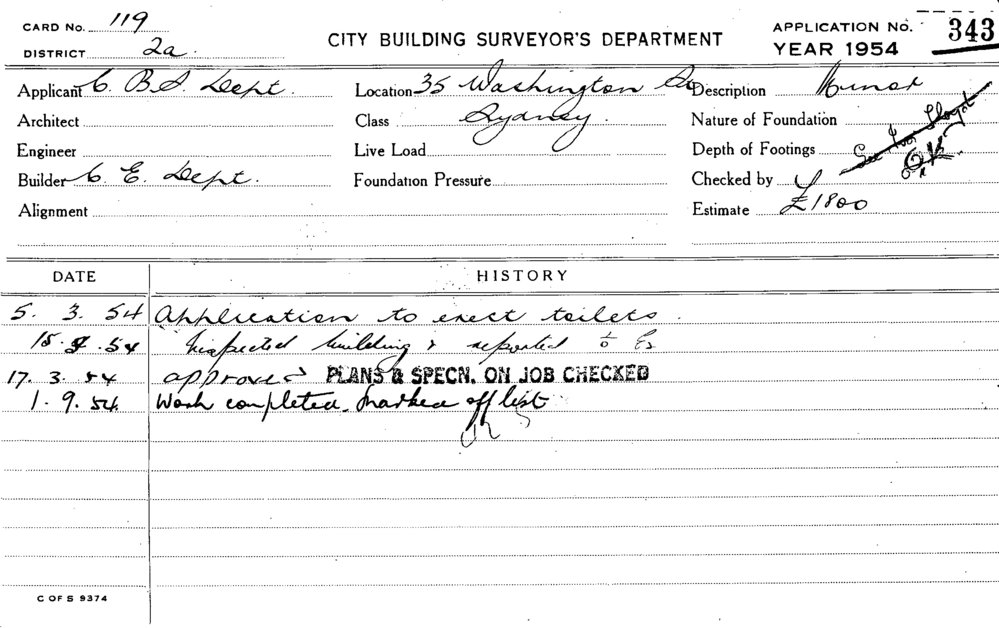 CARD No. 119
DISTRICT 2a.
CITY BUILDING SURVEYOR'S DEPARTMENT
APPLICATION No. 343
YEAR 1954
Applicant C. B. S. Dept.
Location 35 Washington
Description Minor
Architect
Class Sydney.
Nature of Foundation
Engineer
Live Load
Depth of Footings
O.K.
Builder C. E. Dept.
Foundation Pressure
Checked by
Alignment
Estimate £1800
DATE
HISTORY
5. 3. 54 Application to erect toilets.
54 Inspected building & reported to
17. 3. 54 approved PLANS & SPECN. ON JOB CHECKED
1. 9. 54. Work completed. Marked off list
C OF S 9374